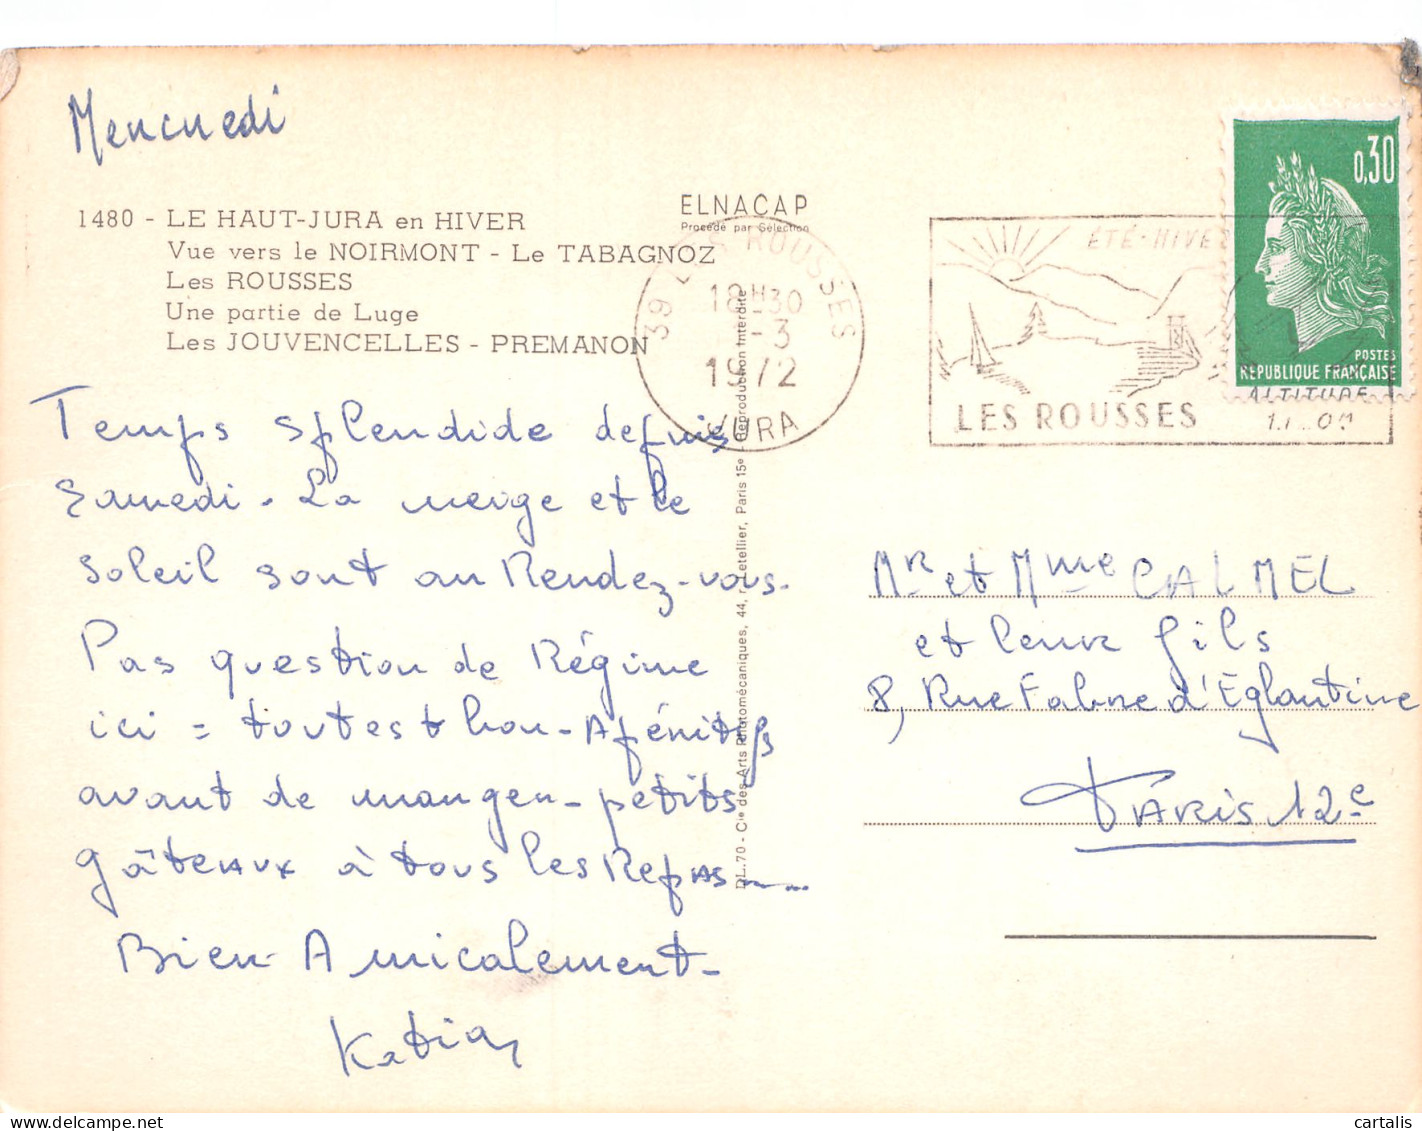 Mercredi
1480 - LE HAUT-JURA en HIVER
Vue vers le NOIRMONT - Le TABAGNOZ
Les ROUSSES
Une partie de Luge
Les JOUVENCELLES - PREMANON
ELNACAP
Procédé par Sélection
39 LES ROUSSES
18H30
1-3
1972
JURA
ÉTÉ-HIVER
LES ROUSSES
ALTITUDE
0,30
POSTES
REPUBLIQUE FRANÇAISE
Temps splendide depuis
samedi. La neige et le
soleil sont au Rendez-vous.
Pas question de Régime
ici = tout est bon - Apéritifs
avant de manger - petits
gâteaux à tous les Repas
Bien Amicalement -
Katia
DL.70 - Cie des Arts Photomécaniques, 44, r. Letellier, Paris 15e - Reproduction Interdite
Mr et Mme CALMEL
et leurs fils
8, Rue Fabre d'Eglantine
PARIS 12e
cartalis
delcampe.net